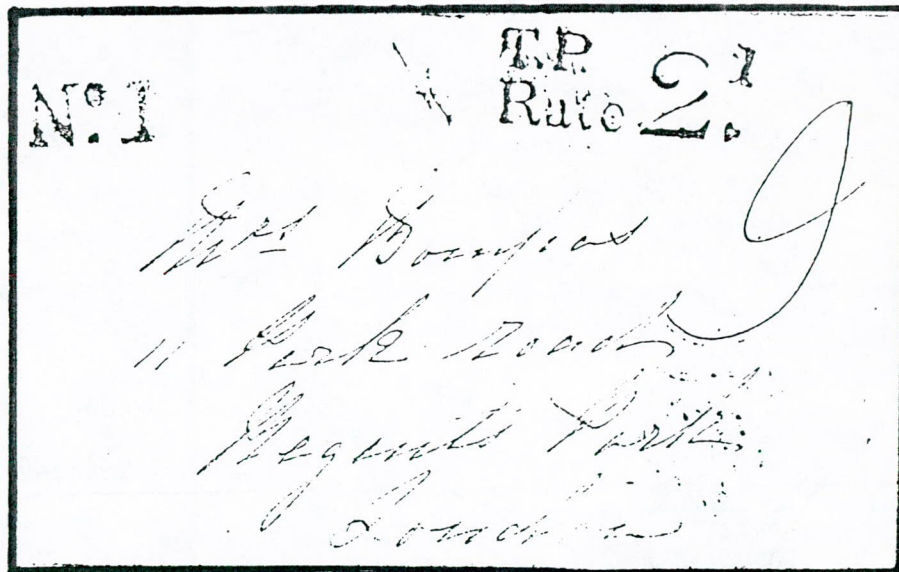 T.P.
No. 1 Rate 2d.
9
Mrs Bompas
11 Park Road
Regents Park
London